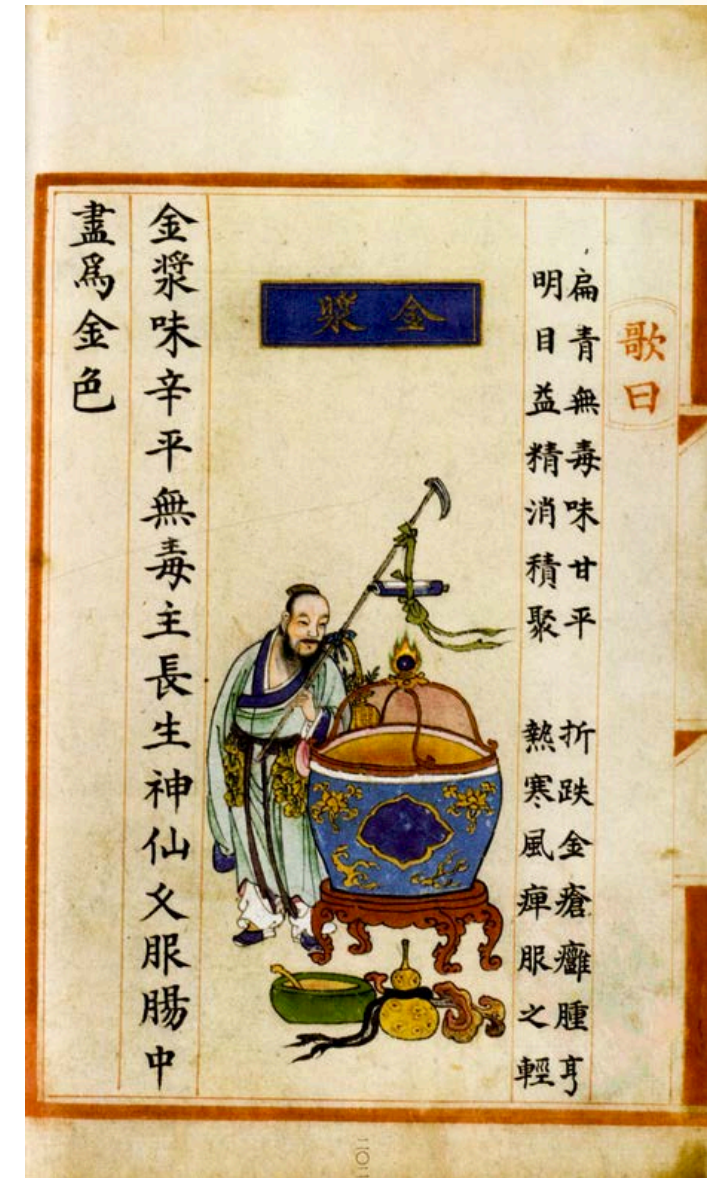 歌曰
扁青無毒味甘平 折跌金瘡癰腫亨
明目益精消積聚 熱寒風痺服之輕
金漿
金漿味辛平無毒主長生神仙久服腸中
盡爲金色